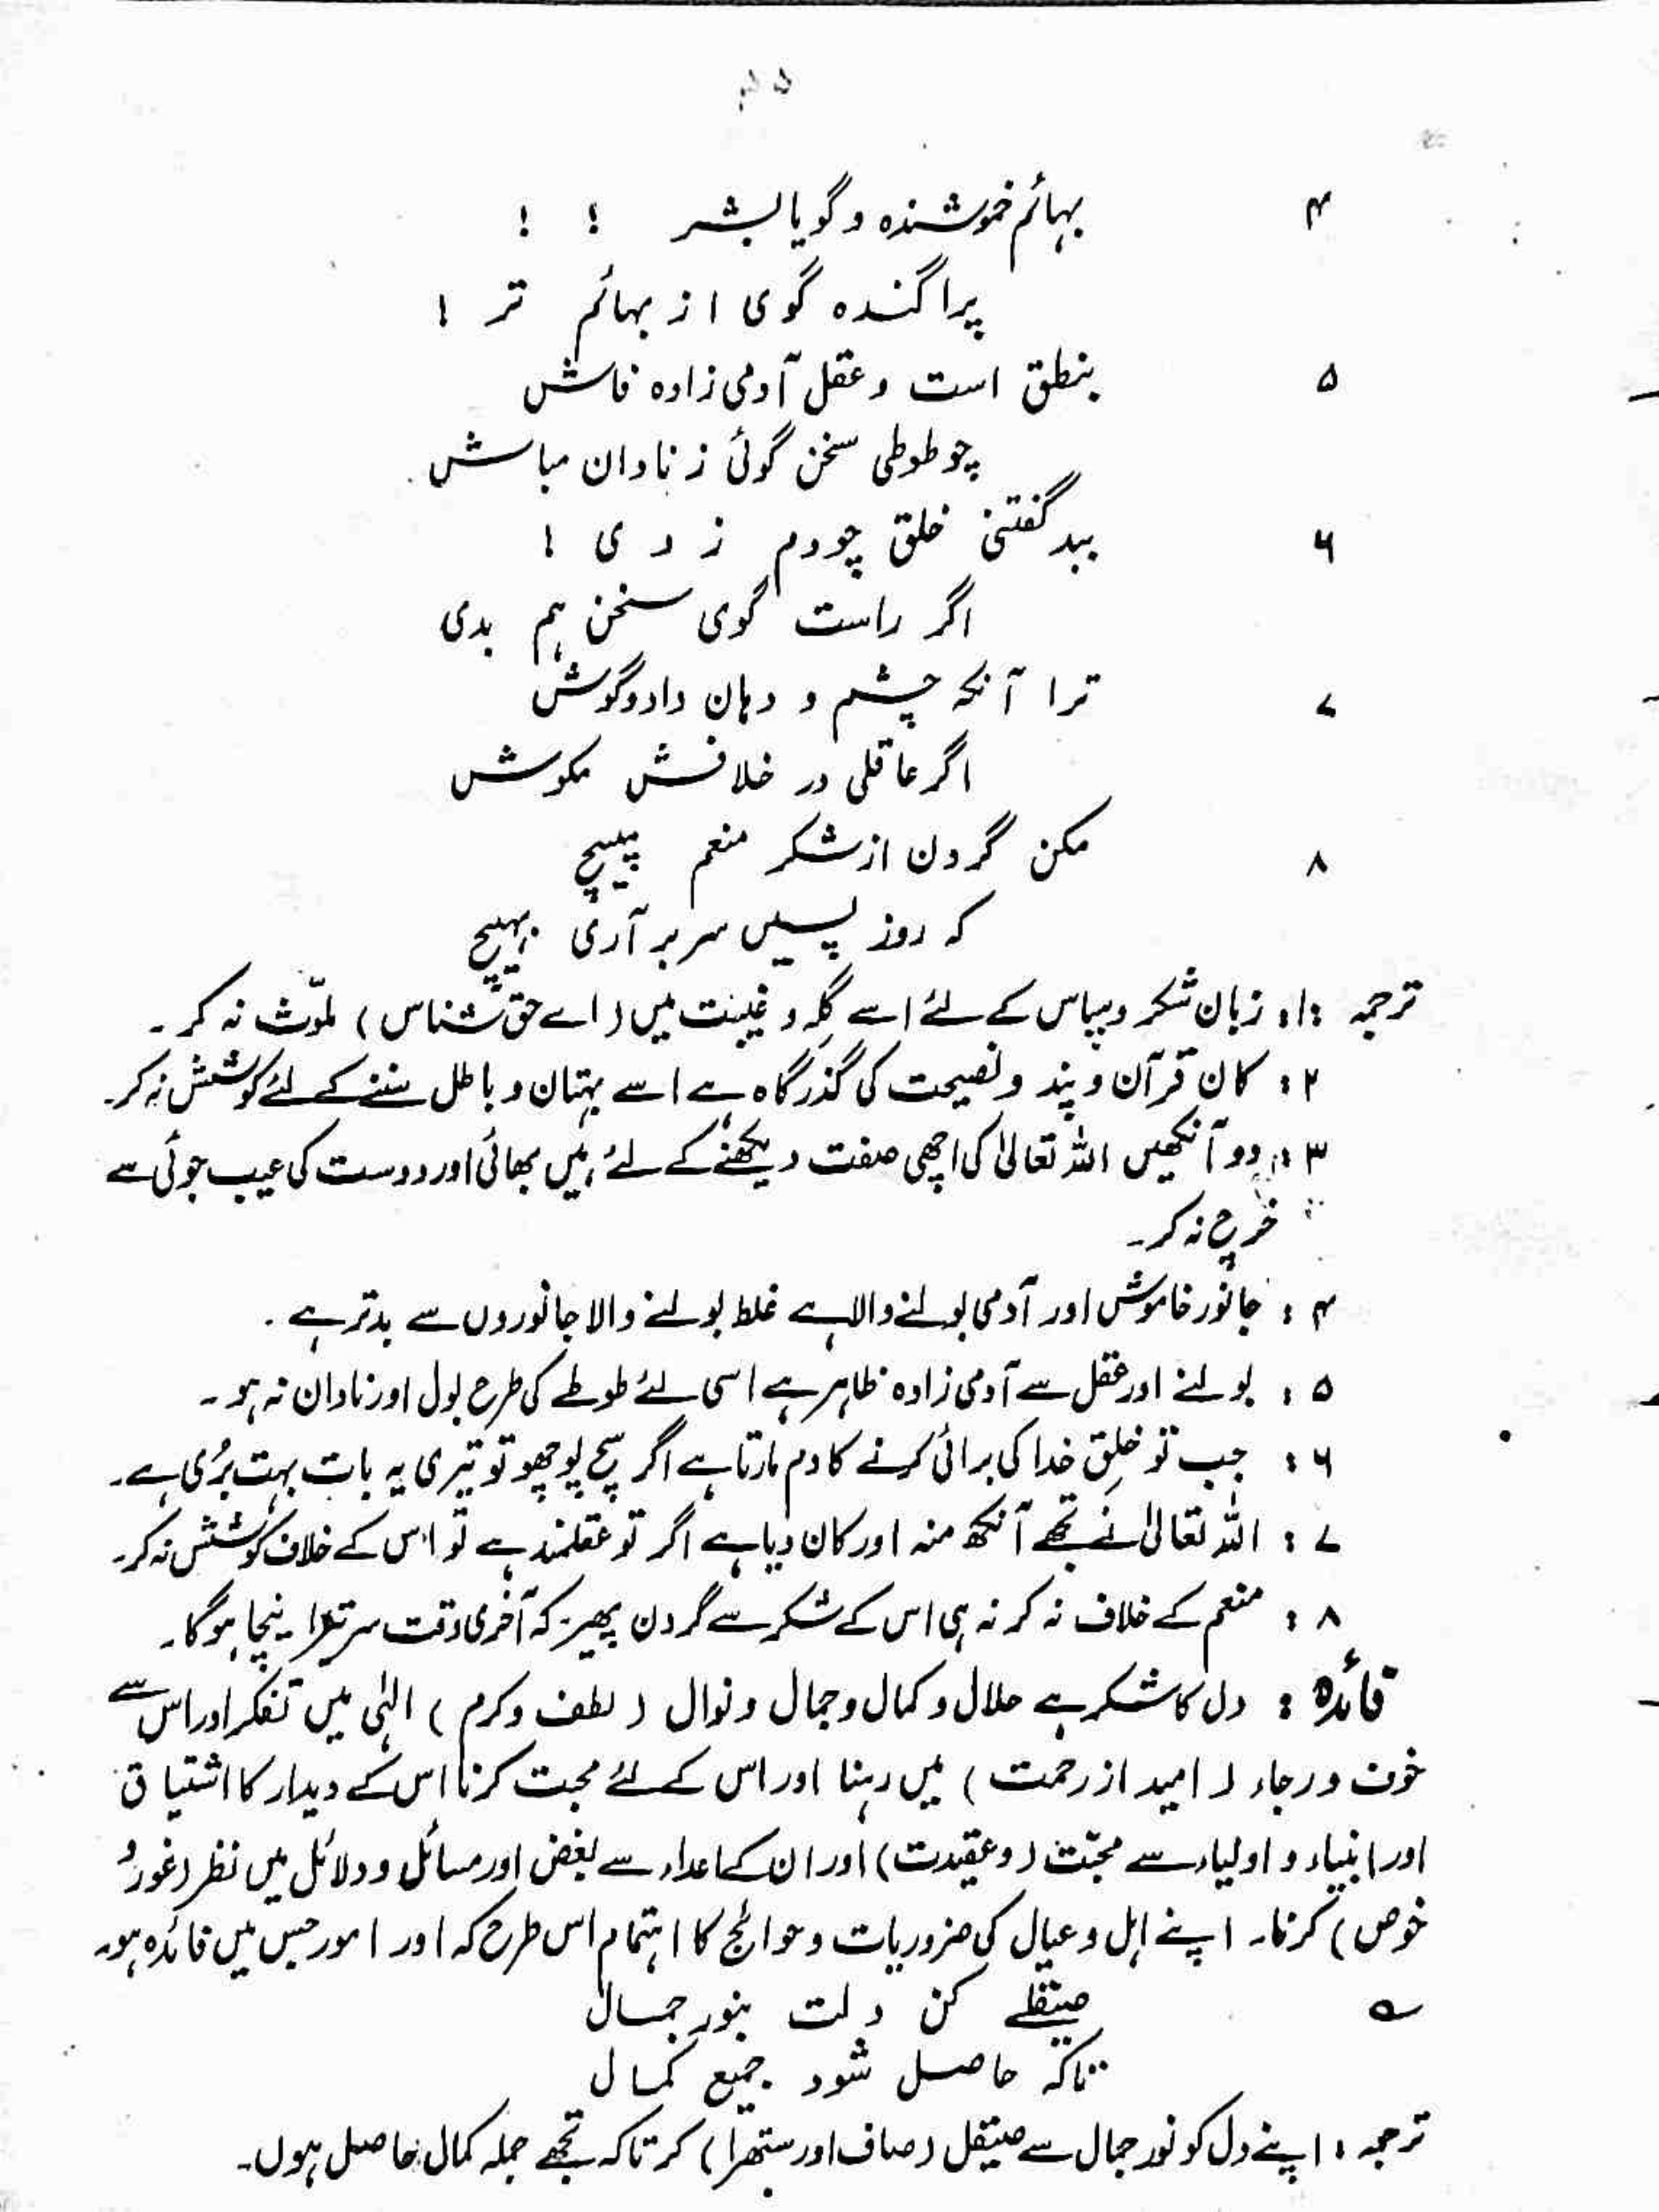 ۴ بہائم خموشندہ و گویا بشر ! !
پراگندہ گوی از بہائم تر !
۵ بنطق است و عقل آدمی زادہ فاش
چو طوطی سخن گوئی ز نادان مباش
۶ ببد گفتنی خلق چو دم زدی !
اگر راست گوی سخن ہم بدی
۷ ترا آنکہ چشم و دہان داد و گوش
اگر عاقلی در خلافش مکوش
۸ مکن گردن از شکر منعم پیپیچ
کہ روز پسیں سر بر آری بہیچ
ترجمہ :۱: زبان شکر و سپاس کے لئے اسے گلہ و غیبت میں (اے حق شناس) ملوّث نہ کر۔
۲: کان قرآن و پند و نصیحت کی گذرگاہ ہے اسے بہتان و باطل سننے کے لئے کوشش نہ کر۔
۳: دو آنکھیں اللہ تعالیٰ کی اچھی صفت دیکھنے کے لئے ہیں بھائی اور دوست کی عیب جوئی سے
خرچ نہ کر۔
۴: جانور خاموش اور آدمی بولنے والا ہے غلط بولنے والا جانوروں سے بدتر ہے۔
۵: بولنے اور عقل سے آدمی زادہ ظاہر ہے اسی لئے طوطے کی طرح بول اور نادان نہ ہو۔
۶: جب تو خلقِ خدا کی برائی کرنے کا دم مارتا ہے اگر سچ پوچھو تو تیری یہ بات بہت بُری ہے۔
۷: اللہ تعالیٰ نے تجھے آنکھ منہ اور کان دیا ہے اگر تو عقلمند ہے تو اس کے خلاف کوشش نہ کر۔
۸: منعم کے خلاف نہ کر نہ ہی اس کے شکر سے گردن پھیر کہ آخری وقت سر تیرا نیچا ہوگا۔
فائدہ: دل کا شکر ہے جلال و کمال و جمال و نوال (لطف و کرم) الہٰی میں تفکر اور اس سے
خوف و رجاء (امید از رحمت) میں رہنا اور اس کے لئے محبت کرنا اس کے دیدار کا اشتیاق
اور انبیاء و اولیاء سے محبّت (و عقیدت) اور ان کے اعداء سے بغض اور مسائل و دلائل میں نظر (غور و
خوص) کرنا۔ اپنے اہل و عیال کی ضروریات و حوائج کا اہتمام اس طرح کہ اور امور جس میں فائدہ ہو۔
؎ صیقلے کن دلت بنورِ جمال
تاکہ حاصل شود جمیع کمال
ترجمہ: اپنے دل کو نور جمال سے صیقل (صاف اور ستھرا) کر تاکہ تجھے جملہ کمال حاصل ہوں۔